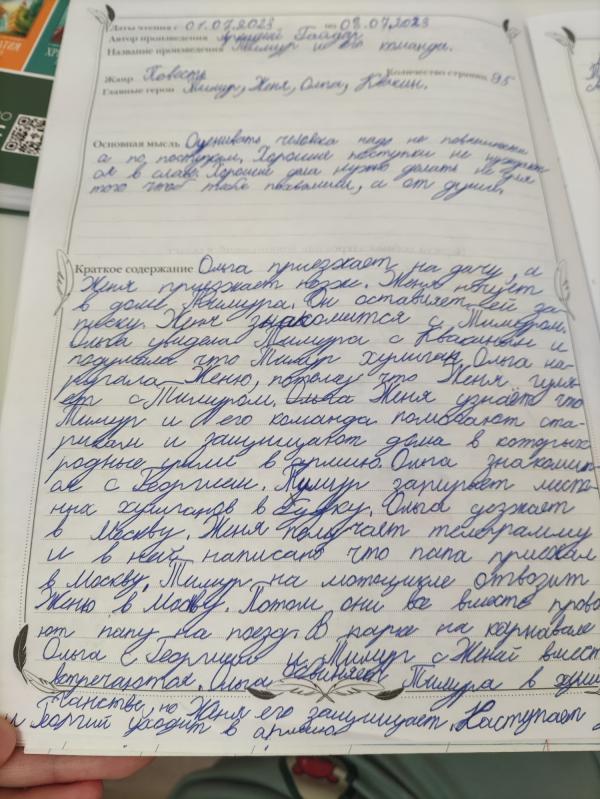 Даты чтения с 01.07.2023 по 08.07.2023
Автор произведения Аркадий Гайдар
Название произведения Тимур и его команда.
Жанр Повесть Количество страниц 95
Главные герои Тимур, Женя, Ольга, Квакин.
Основная мысль Оценивать человека надо не по внешности
а по поступкам. Хорошие поступки не нуждают
ся в славе. Хорошие дела нужно делать не для
того чтоб тебя похвалили, а от души.
Краткое содержание Ольга приезжает на дачу, а
Женя приезжает позже. Женя ночует
в доме Тимура. Он оставляет ей за
писку. Женя знакомится с Тимуром.
Ольга увидела Тимура с Квакиным и
подумала что Тимур хулиган. Ольга на-
ругала Женю, потому что Женя гуля-
ет с Тимуром. Ольга Женя узнаёт что
Тимур и его команда помогают ста-
рикам и защищают дома в которых
родные ушли в армию. Ольга знакомит-
ся с Георгием. Тимур запирает мест-
ных хулиганов в будку. Ольга уезжает
в Москву. Женя получает телеграмму
и в ней написано что папа приехал
в Москву. Тимур на мотоцикле отвозит
Женю в Москву. Потом они все вместе прово
ют папу на поезд. В парке на карнавале
Ольга с Георгием и Тимур с Женей вмест
встречаются. Ольга обвиняет Тимура в хули
ганстве, но Женя его защищает. Наступает
и Георгий уходит в армию